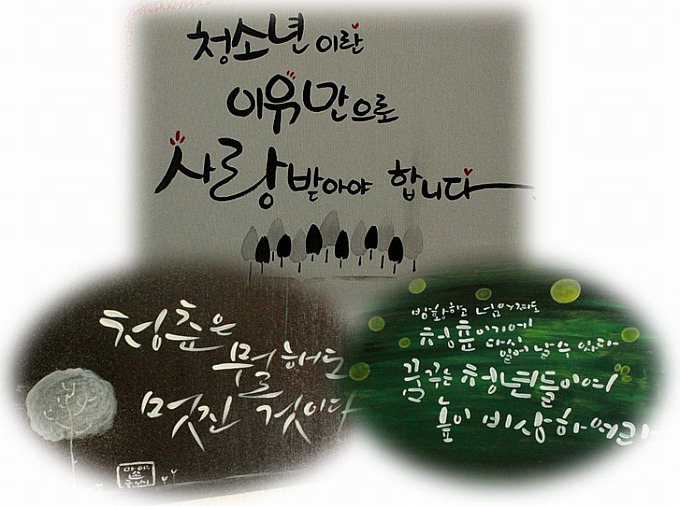 청소년이란
이유만으로
사랑받아야 합니다
청춘은
뭘해도
멋진 것이다
방황하고 넘어져도
청춘이기에
다시
일어날 수 있다
꿈꾸는 청년들이여
높이 비상하여라